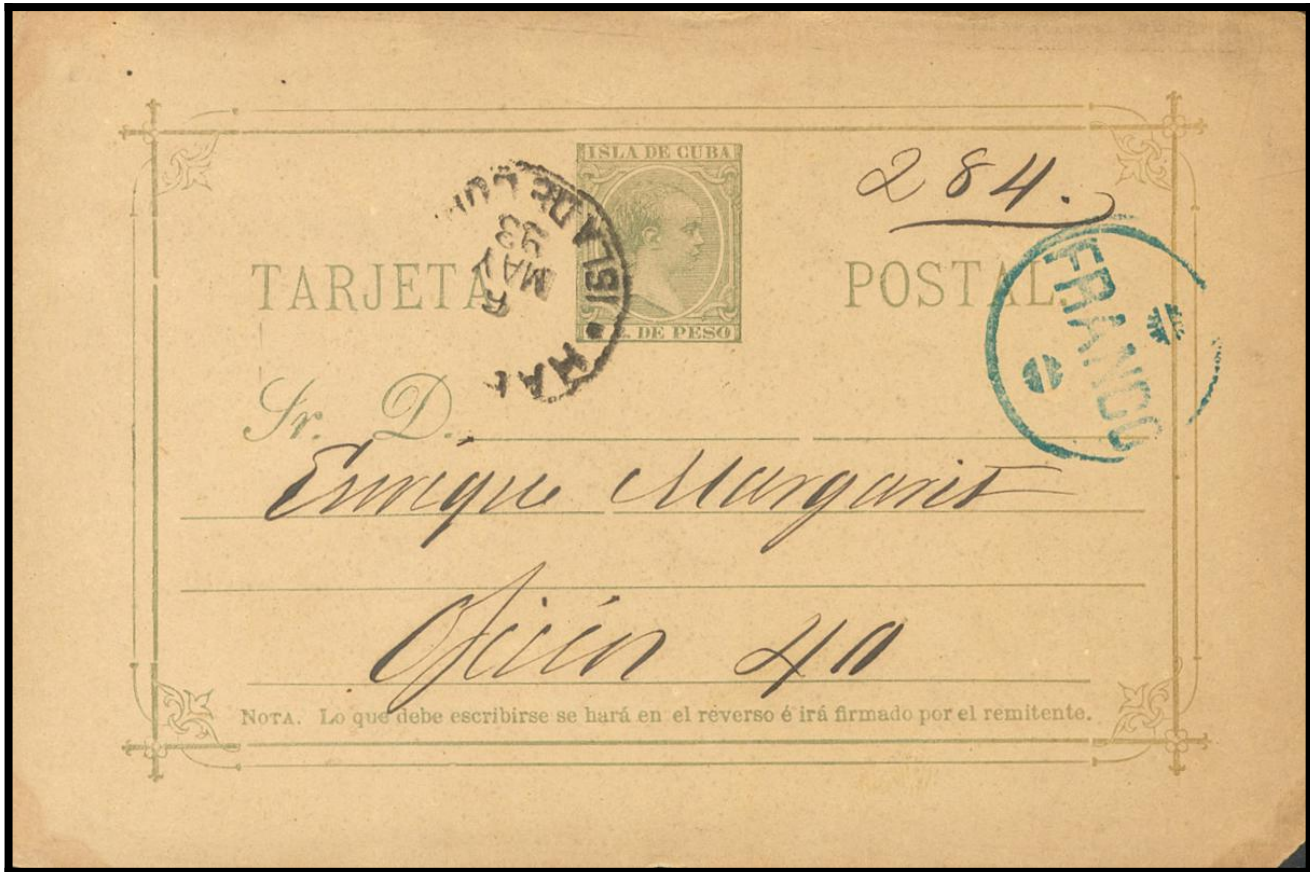 ISLA DE CUBA
DE PESO
284.
TARJETA POSTAL
ISLA DE
MAY
93
FRANCO
Sr. D.
Enrique Margarit
40
NOTA. Lo que debe escribirse se hará en el reverso é irá firmado por el remitente.